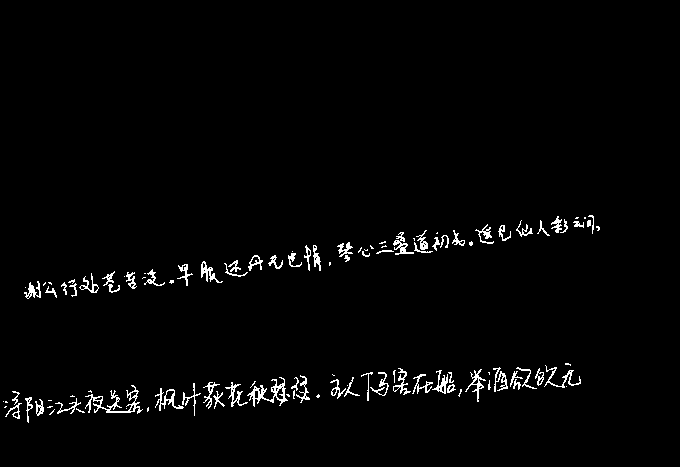 谢公行处苍苔没。早服还丹无世情,琴心三叠道初成。遥见仙人彩云间,
浔阳江头夜送客,枫叶荻花秋瑟瑟。主人下马客在船,举酒欲饮无